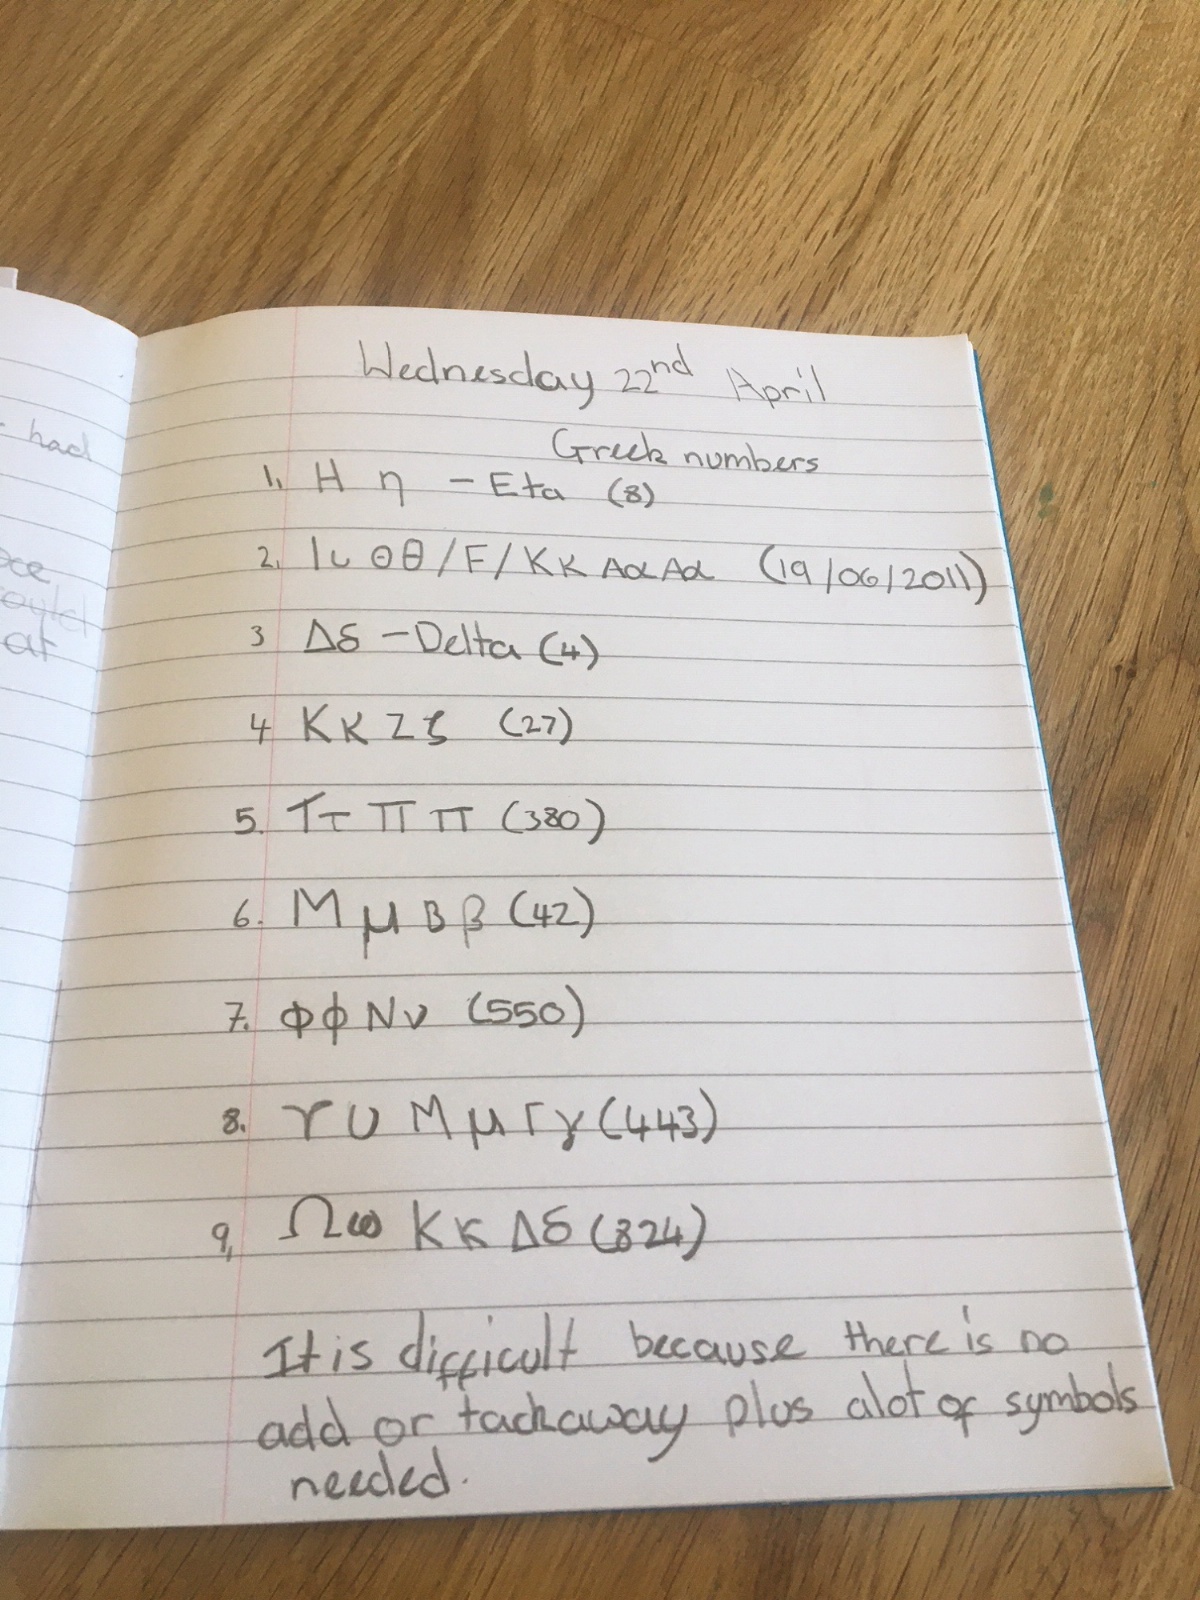 had
Wednesday 22nd April
Greek numbers
1. H η - Eta (8)
2. Ιι Θθ/F/Κκ Αα Αα (19/06/2011)
3 Δδ - Delta (4)
4 Κκ Ζζ (27)
5. Ττ Ππ (380)
6. Μμ Ββ (42)
7. Φφ Νν (550)
8. ϒυ Μμ Γγ (443)
9, Ωω Κκ Δδ (824)
at
It is difficult because there is no
add or tackaway plus alot of symbols
needed.